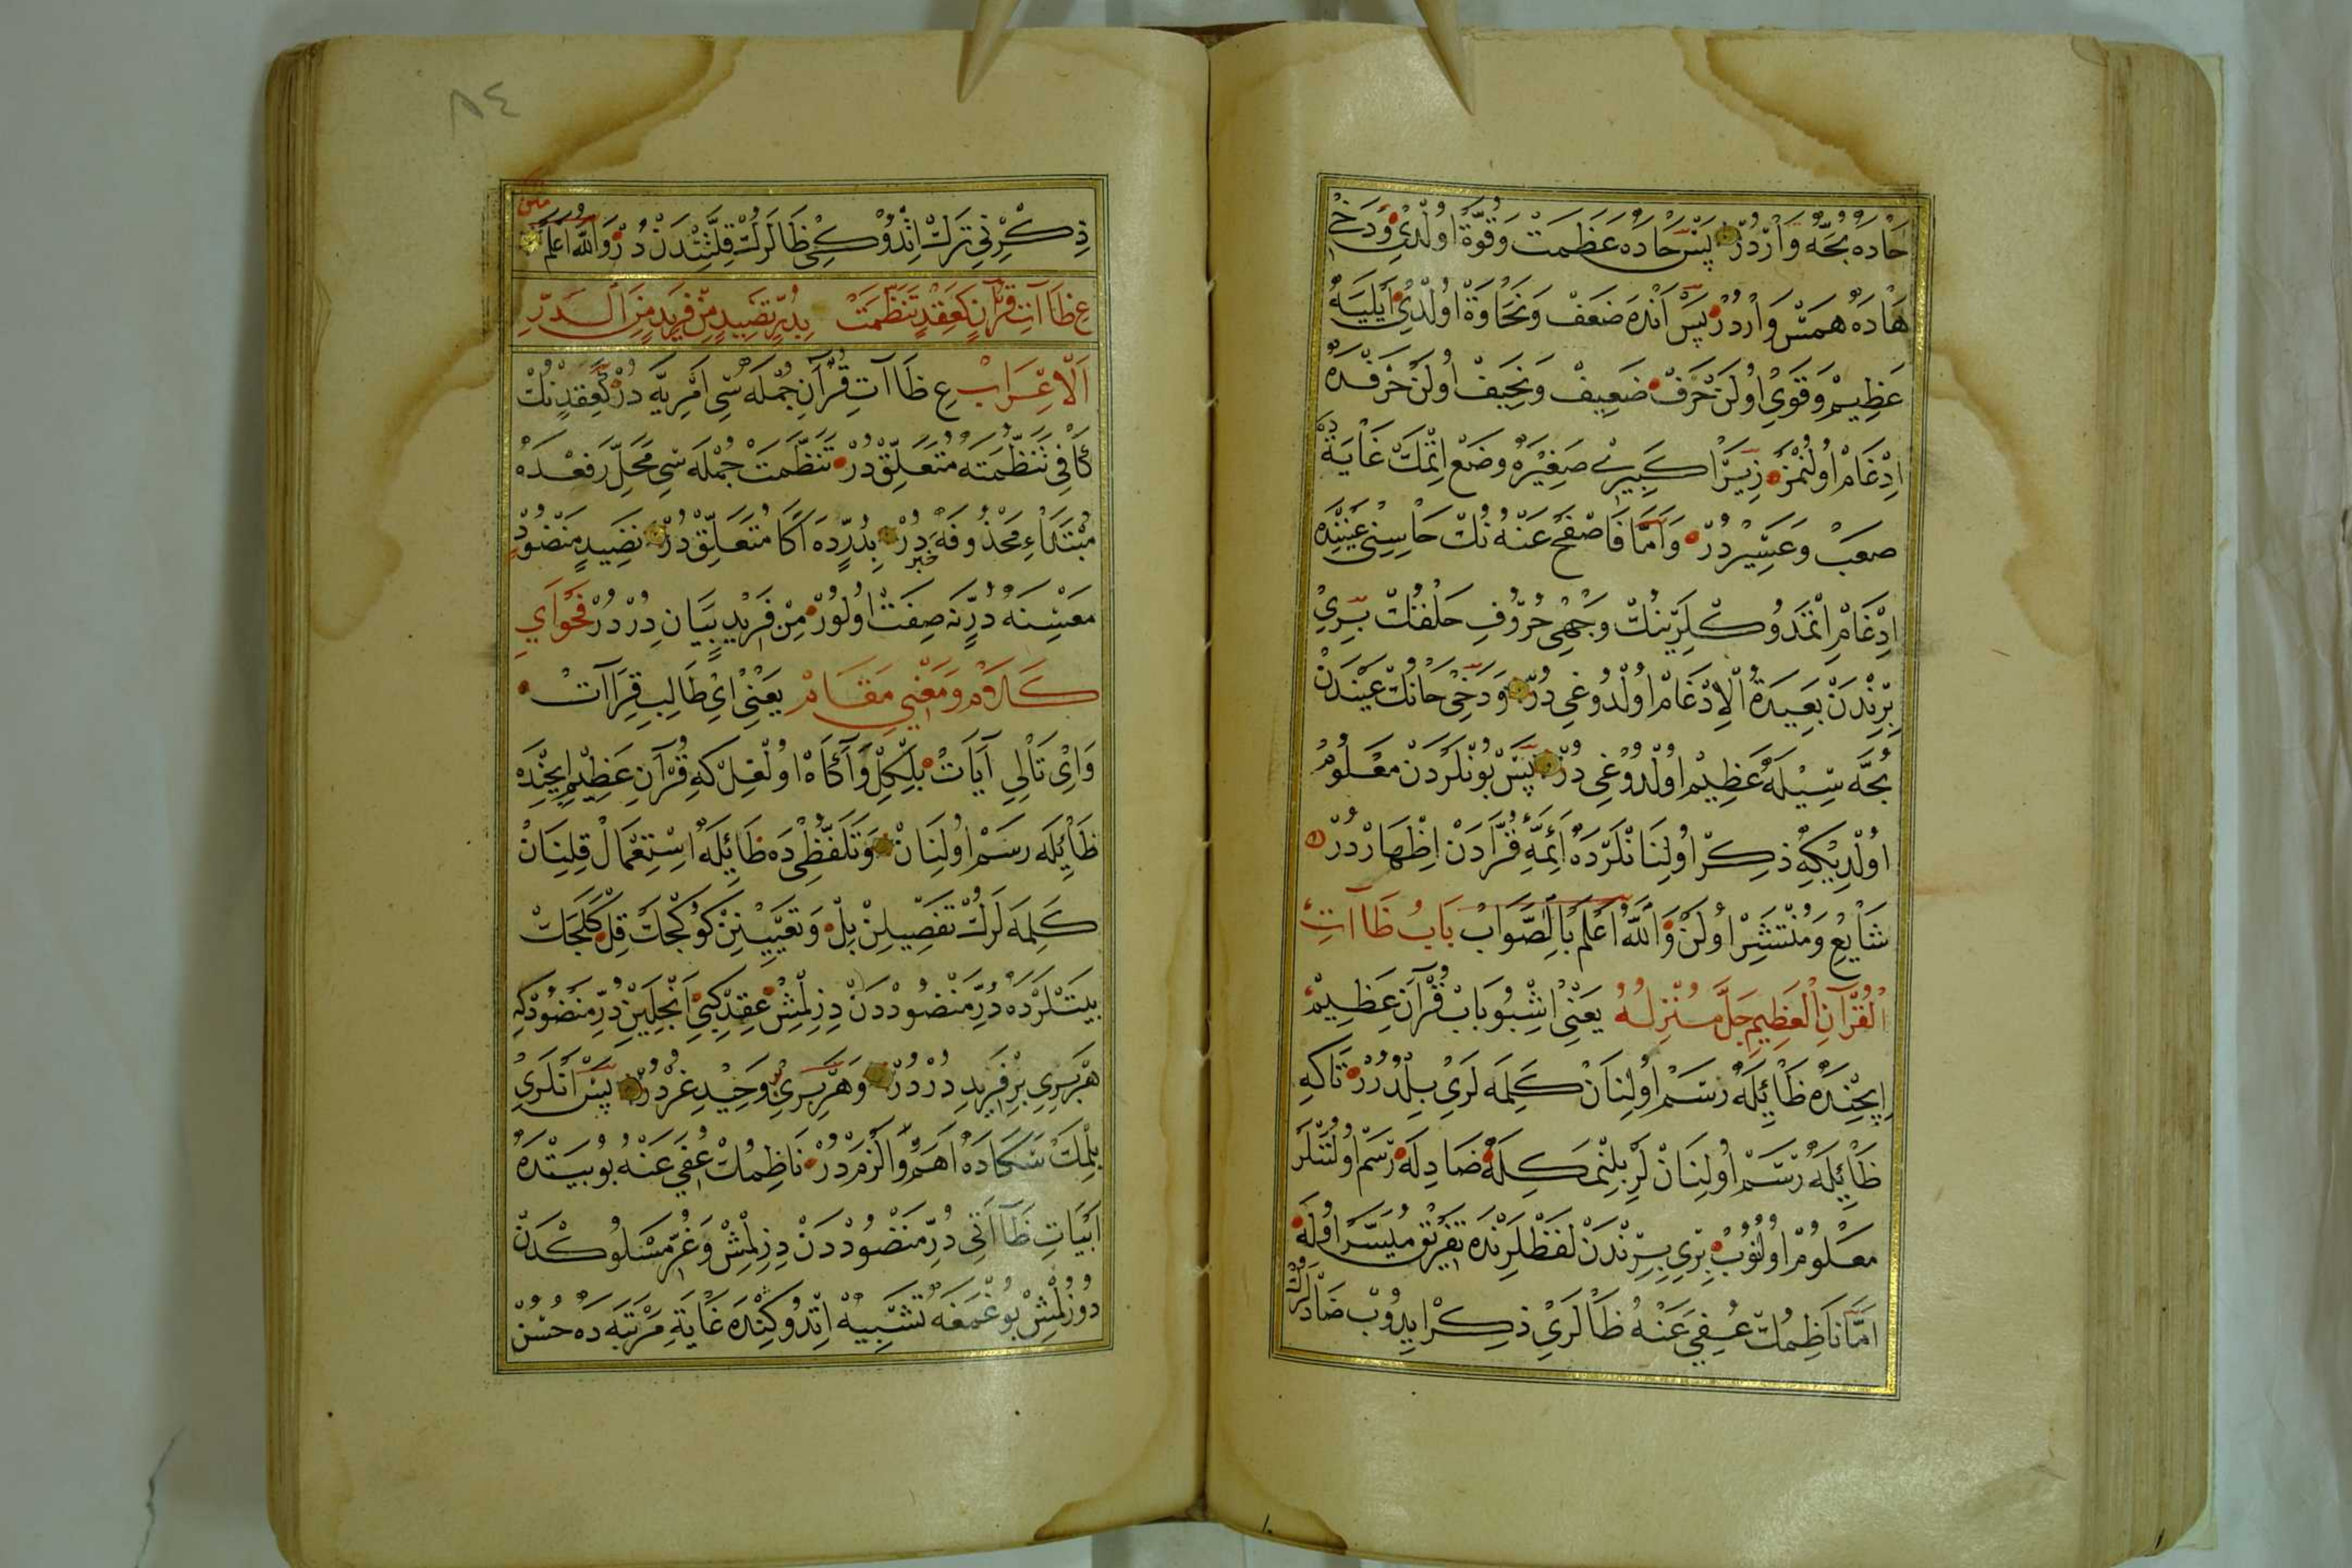 حاده بحّه واردر پس حاده عظمت وقوة اولدي ودخی
هاده همس واردر پس انده ضعف ونحاوة اولدی ایلیه
عظیم وقوی اولن حرف ضعیف ونحیف اولن حرفده
ادغام اولنمز زیرا كبیری صغیره وضع اتمك غایة
صعب وعسیر در واما فاصفح عنه نك حاسنی عیننده
ادغام اتمدوكلرینك وجهی حروف حلقك بری
برندن بعیدة الادغام اولدوغی در ودخی حانك عیندن
بحّه سیله عظیم اولدوغی در پس بونلردن معلوم
اولدیكه ذكر اولنانلرده ائمّه قرّادن اظهار در
شایع ومنتشر اولن والله اعلم بالصواب باب ظاآت
القرآن العظیم جلّ منزله یعنی اشبو باب قرآن عظیم
ایچنده ظائیله رسم اولنان كلمه لری بلدرر تاكه
ظائیله رسم اولنان لر بلنمكله ضادله رسم اولننلر
معلوم اولنوب بری برندن لفظلرنده تفریق میسر اوله
امّا ناظمك عفی عنه ظالری ذكر ایدوب ضادلرك
ذكرنی ترك اتدوكی ظالرك قلّتندن در والله اعلم
متن
ع ظاآت قرآن كعقد تنظمت بدرّ نضید من فرید من الدرر
الاعراب ع ظاآت قرآن جمله سی امریه در كعقدنك
كافی تنظمته متعلّق در تنظّمت جمله سی محلّ رفعده
مبتداء محذوفه خبر در بدرّده اكا متعلّق در نضید منضود
معنسنه درّنه صفت اولور من فرید بیان در درر فحوای
كلام ومعنی مقام یعنی ای طالب قراآت
وای تالی آیات بلكل وآگاه اولغل كه قرآن عظیم ایچنده
ظائیله رسم اولنان وتلفّظی ده ظائیله استعمال قلنان
كلمه لرك تفصیلن بل وتعیینن كوكجك قل كلجك
بیتلرده درّ منضوددن دزلمش عقد كبی انجلین درّ منضود كه
هر بری بر فرید در در وهر بری وحید غرر در پس انلری
بلمك سكاده اهم والزم در ناظمك عفی عنه بو بیتده
ابیات ظاآتی درّ منضوددن دزلمش وغرّ مسلوكدن
دوزلمش بوغمغه تشبیه اتدوكنده غایة مرتبه ده حسن
٨٤